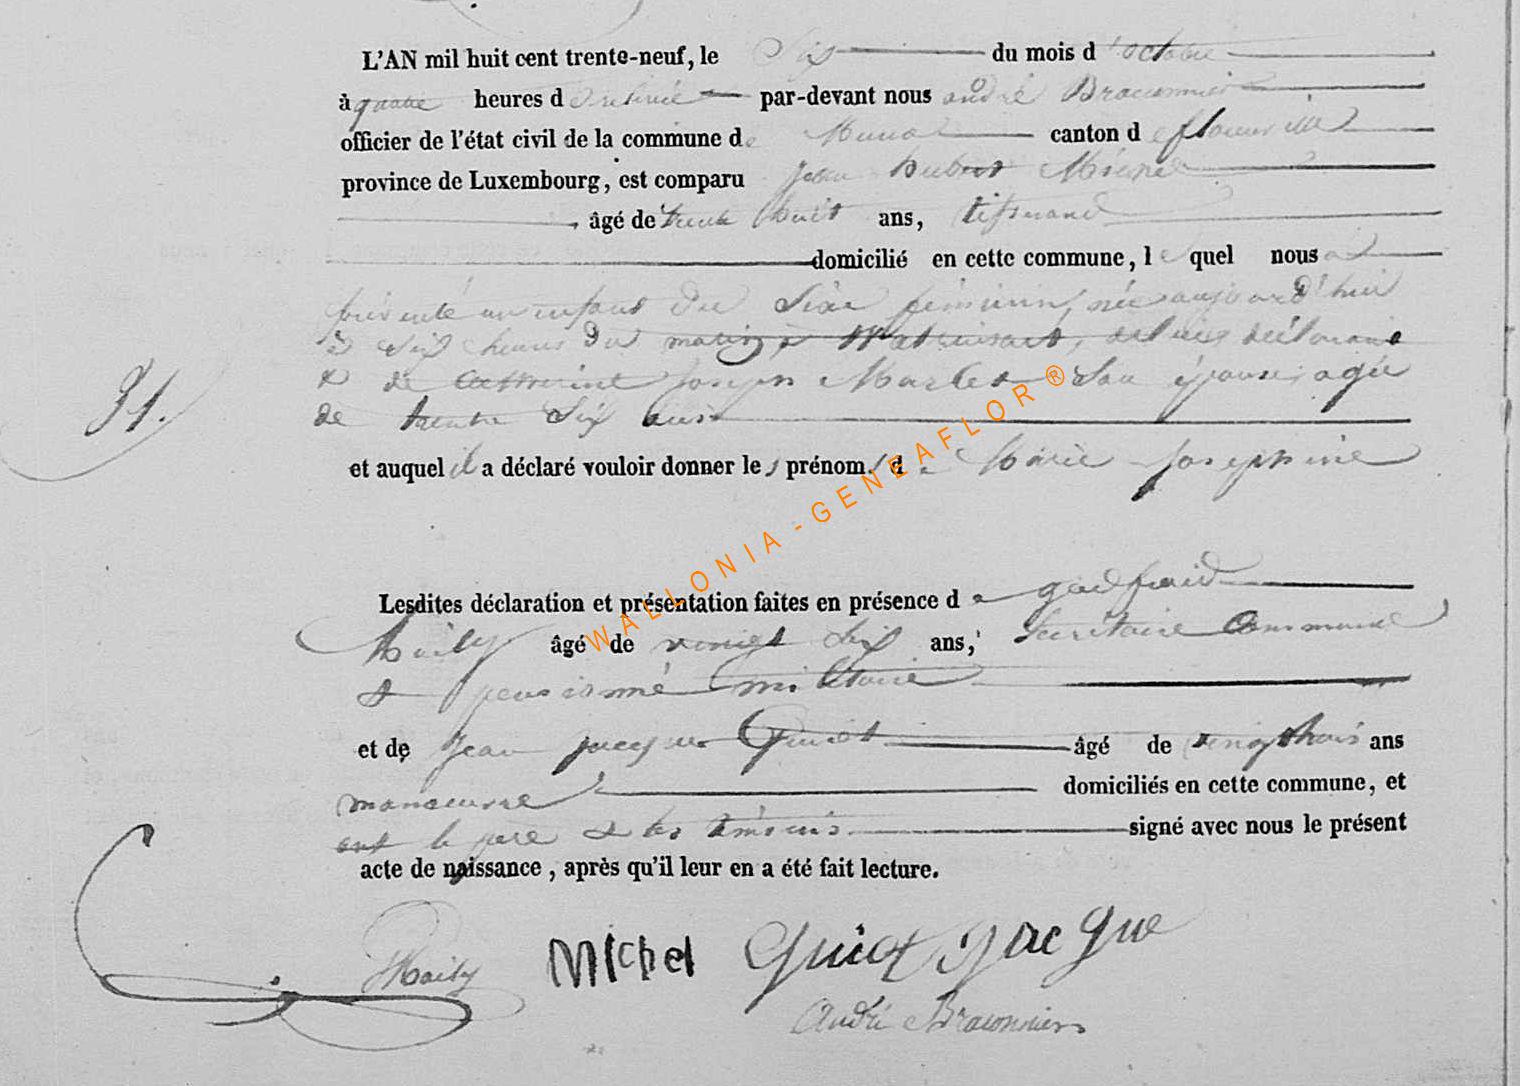 L'AN mil huit cent trente-neuf, le Six du mois d'octobre
à quatre heures de relevée par-devant nous andré Braconnier
officier de l'état civil de la commune de Muno canton de florenville
province de Luxembourg, est comparu Jean hubert Michel
âgé de trente huit ans, tisserand
domicilié en cette commune, lequel nous a
présenté un enfant du Sexe féminin, née aujourd'hui
à Six heures du matin à Watrinsart, de lui déclarant
& de Catherine Joseph Marlet Son épouse, agée
31.
de trente Six ans
et auquel il a déclaré vouloir donner les prénoms de Marie Josephine
WALLONIA - GENEAFLOR ®
Lesdites déclaration et présentation faites en présence de godfroid
haily âgé de vingt Six ans, Secrétaire Communal
& pensionné militaire
et de Jean jacques Guiot âgé de vingt trois ans
manoeuvre domiciliés en cette commune, et
ont le pere & les témoins signé avec nous le présent
acte de naissance, après qu'il leur en a été fait lecture.
Hailly MIchel Guiot JacQue
André Braconnier